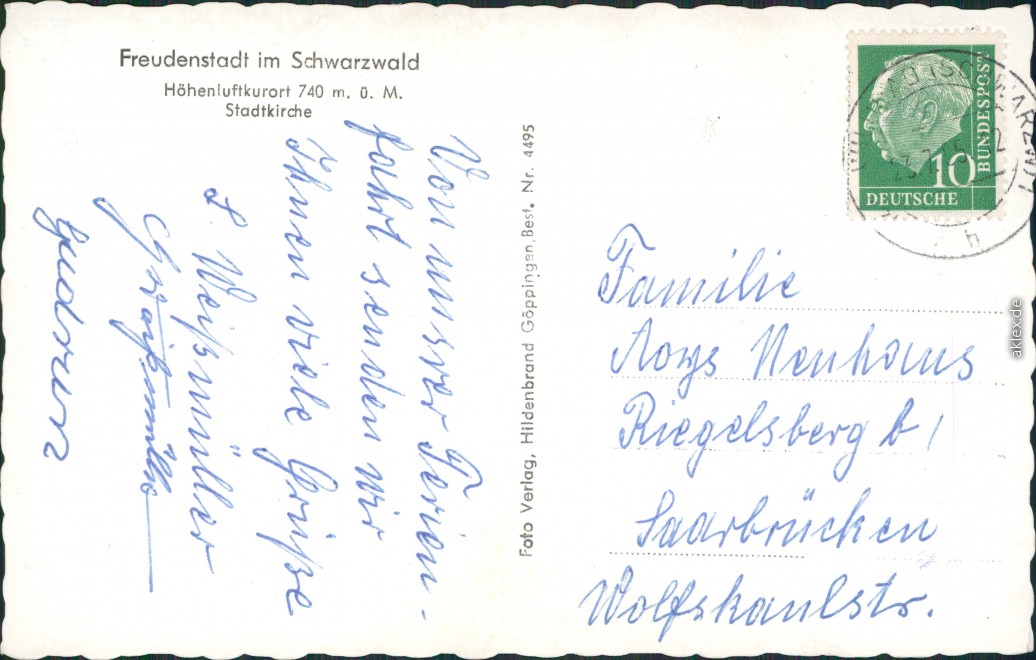 Freudenstadt im Schwarzwald
Höhenluftkurort 740 m. ü. M.
Stadtkirche
Von unsrer Ferien-
fahrt senden wir
Ihnen viele Grüße
L. Weißmüller
G. Weißmüller
Gudrun
Foto Verlag, Hildenbrand Göppingen, Best. Nr. 4495
BUNDESPOST
10
DEUTSCHE
h
Familie
Aloys Neuhaus
Riegelsberg b/
Saarbrücken
Wolfskaulstr.
aklex.de